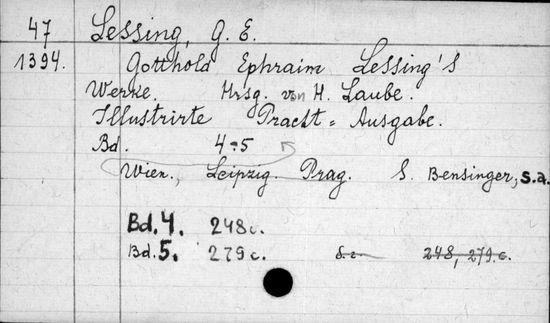 47 Lessing, G. E.
1394. Gotthold Ephraim Lessing's
Werke. Hrsg. von H. Laube.
Illustrirte Pracht-Ausgabe.
Bd. 4-5
Wien., Leipzig. Prag. S. Bensinger, s.a.
Bd. 4. 248 c.
Bd. 5. 279 c. s.a. 248, 279. c.